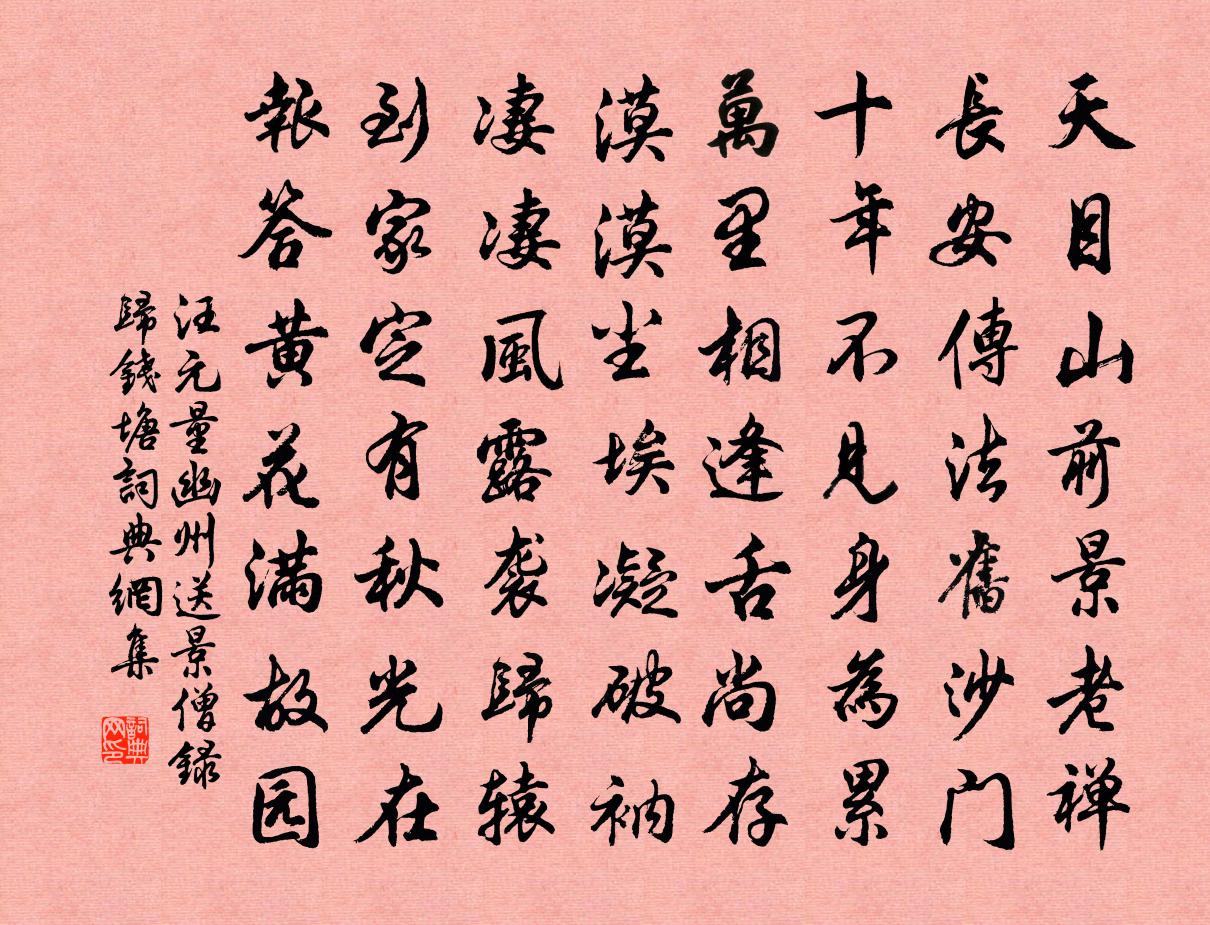 天目山前景老禅
長安傳法舊沙门
十年不見身為累
萬里相逢舌尚存
漠漠尘埃凝破衲
凄凄風露袭歸辕
到家定有秋光在
報答黄花满故园
汪元量幽州送景僧録
歸錢塘詞典網集
詞典网印